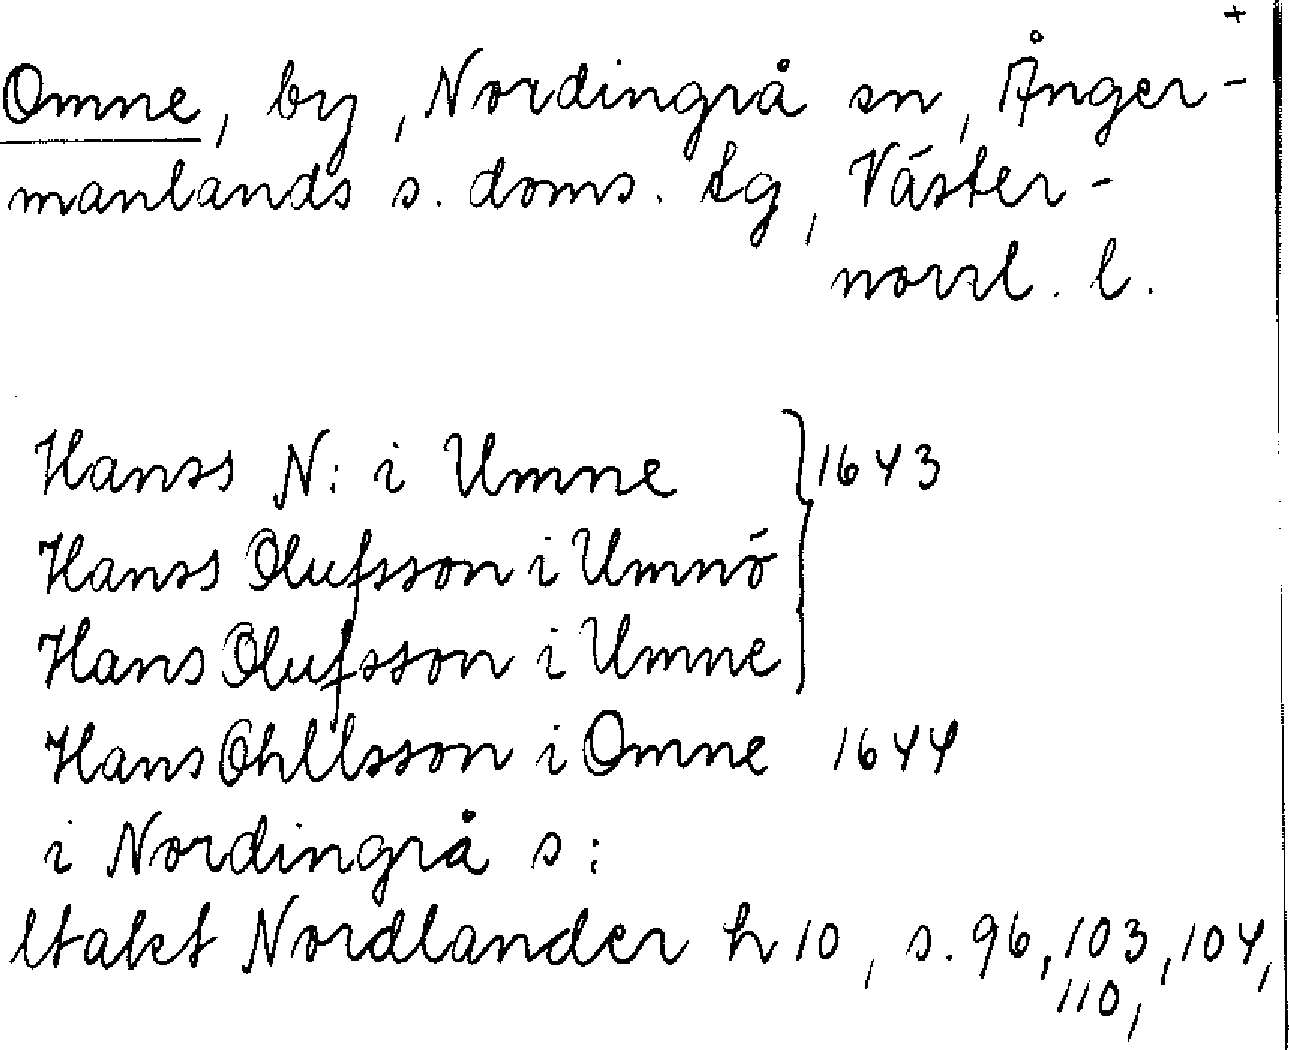 +
Omne, by, Nordingrå sn, Ånger-
manlands s. doms. tg, Väster-
norrl. l.
Hanss N: i Umne } 1643
Hanss Olufsson i Umnö
Hans Olufsson i Umne
Hans Ohllsson i Omne 1644
i Nordingrå s:
ltakt Nordlander h 10, s. 96, 103, 104,
110,